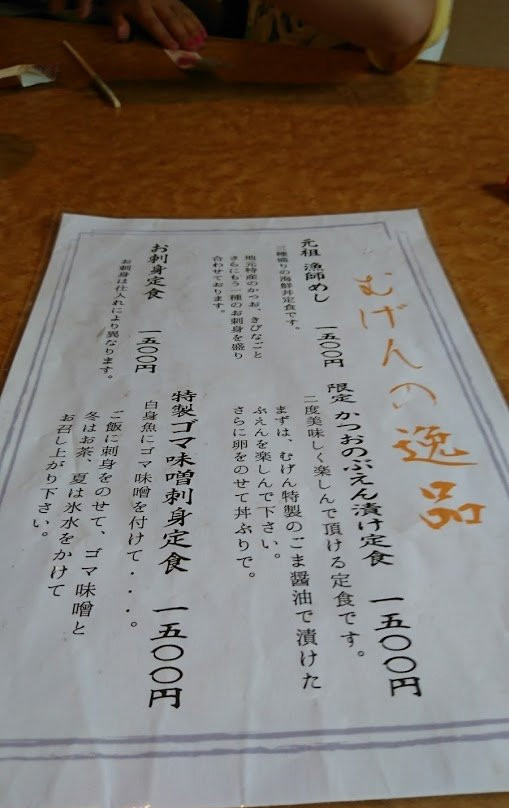 むげんの逸品
元祖 漁師めし 一五〇〇円
三種盛りの海鮮丼定食です。
地元特産のかつお、きびなごと
さらにもう一種のお刺身を盛り
合わせております。
お刺身定食 一五〇〇円
お刺身は仕入れにより異なります。
限定 かつおのぶえん漬け定食 一五〇〇円
二度美味しく楽しんで頂ける定食です。
まずは、むげん特製のごま醤油で漬けた
ぶえんを楽しんで下さい。
さらに卵をのせて丼ぶりで。
特製ゴマ味噌刺身定食 一五〇〇円
白身魚にゴマ味噌を付けて・・・。
ご飯に刺身をのせて、ゴマ味噌と
冬はお茶、夏は氷水をかけて
お召し上がり下さい。